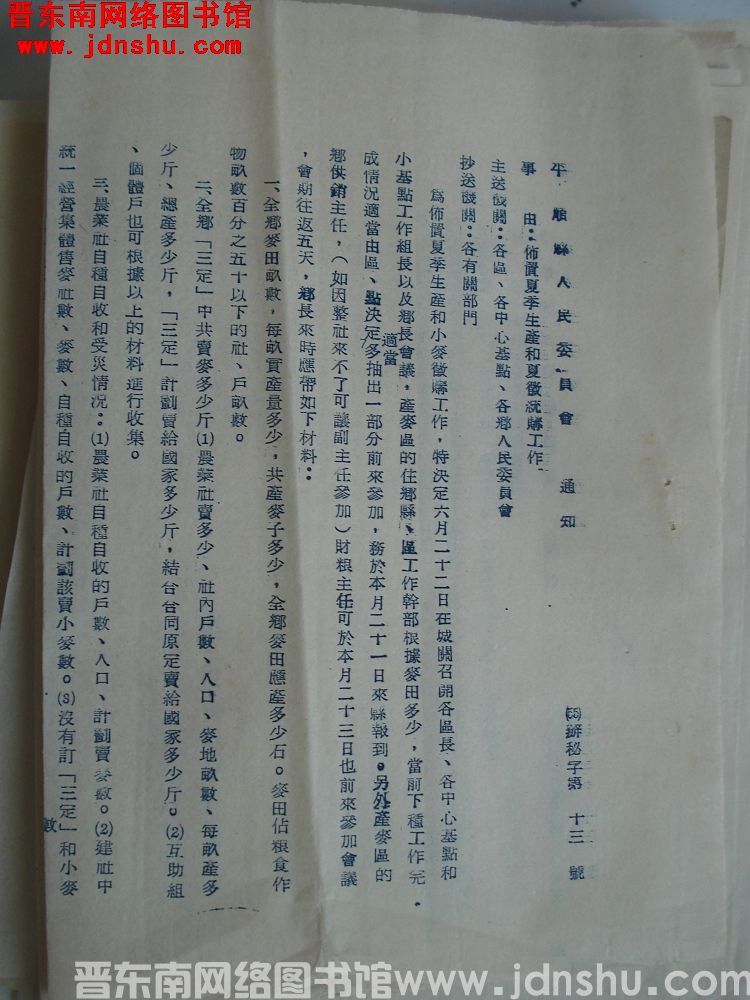 晋东南网络图书馆
www.jdnshu.com
平順縣人民委員會 通知
(55)辦秘字第 十三 號
事 由：佈置夏季生產和夏徵統購工作
主送機關：各區、各中心基點、各鄉人民委員會
抄送機關：各有關部門
為佈置夏季生產和小麥徵購工作，特決定六月二十二日在城關召開各區長、各中心基點和
小基點工作組長以及鄉長會議，產麥區的住鄉縣、區工作幹部根據麥田多少，當前下種工作完
成情况適當由區、點決定多抽出一部分前來參加，務於本月二十一日來縣報到。另外產麥區的
適當
鄉供銷主任，（如因整社來不了可讓副主任參加）財粮主任可於本月二十三日也前來參加會議
，會期往返五天，鄉長來時應帶如下材料：
一、全鄉麥田畝數，每畝實產量多少，共產麥子多少，全鄉麥田應產多少石。麥田佔粮食作
物畝數百分之五十以下的社、戶畝數。
二、全鄉「三定」中共賣麥多少斤(1)農業社賣多少、社內戶數、人口、麥地畝數、每畝產多
少斤、總產多少斤，「三定」計劃賣給國家多少斤，結合合同原定賣給國家多少斤。(2)互助組
、個體戶也可根據以上的材料進行收集。
三、農業社自種自收和受災情况：(1)農業社自種自收的戶數、人口、計劃賣麥數。(2)建社中
統一經營集體售麥社數、麥數、自種自收的戶數、計劃該賣小麥數。(3)沒有訂「三定」和小麥
數
晋东南网络图书馆www.jdnshu.com